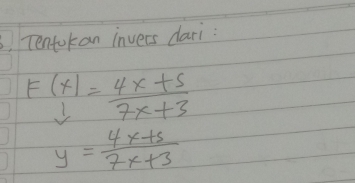 3. Tentukan invers dari :
F(x) = 4x+5 / 7x+3
↓
y = 4x+5 / 7x+3